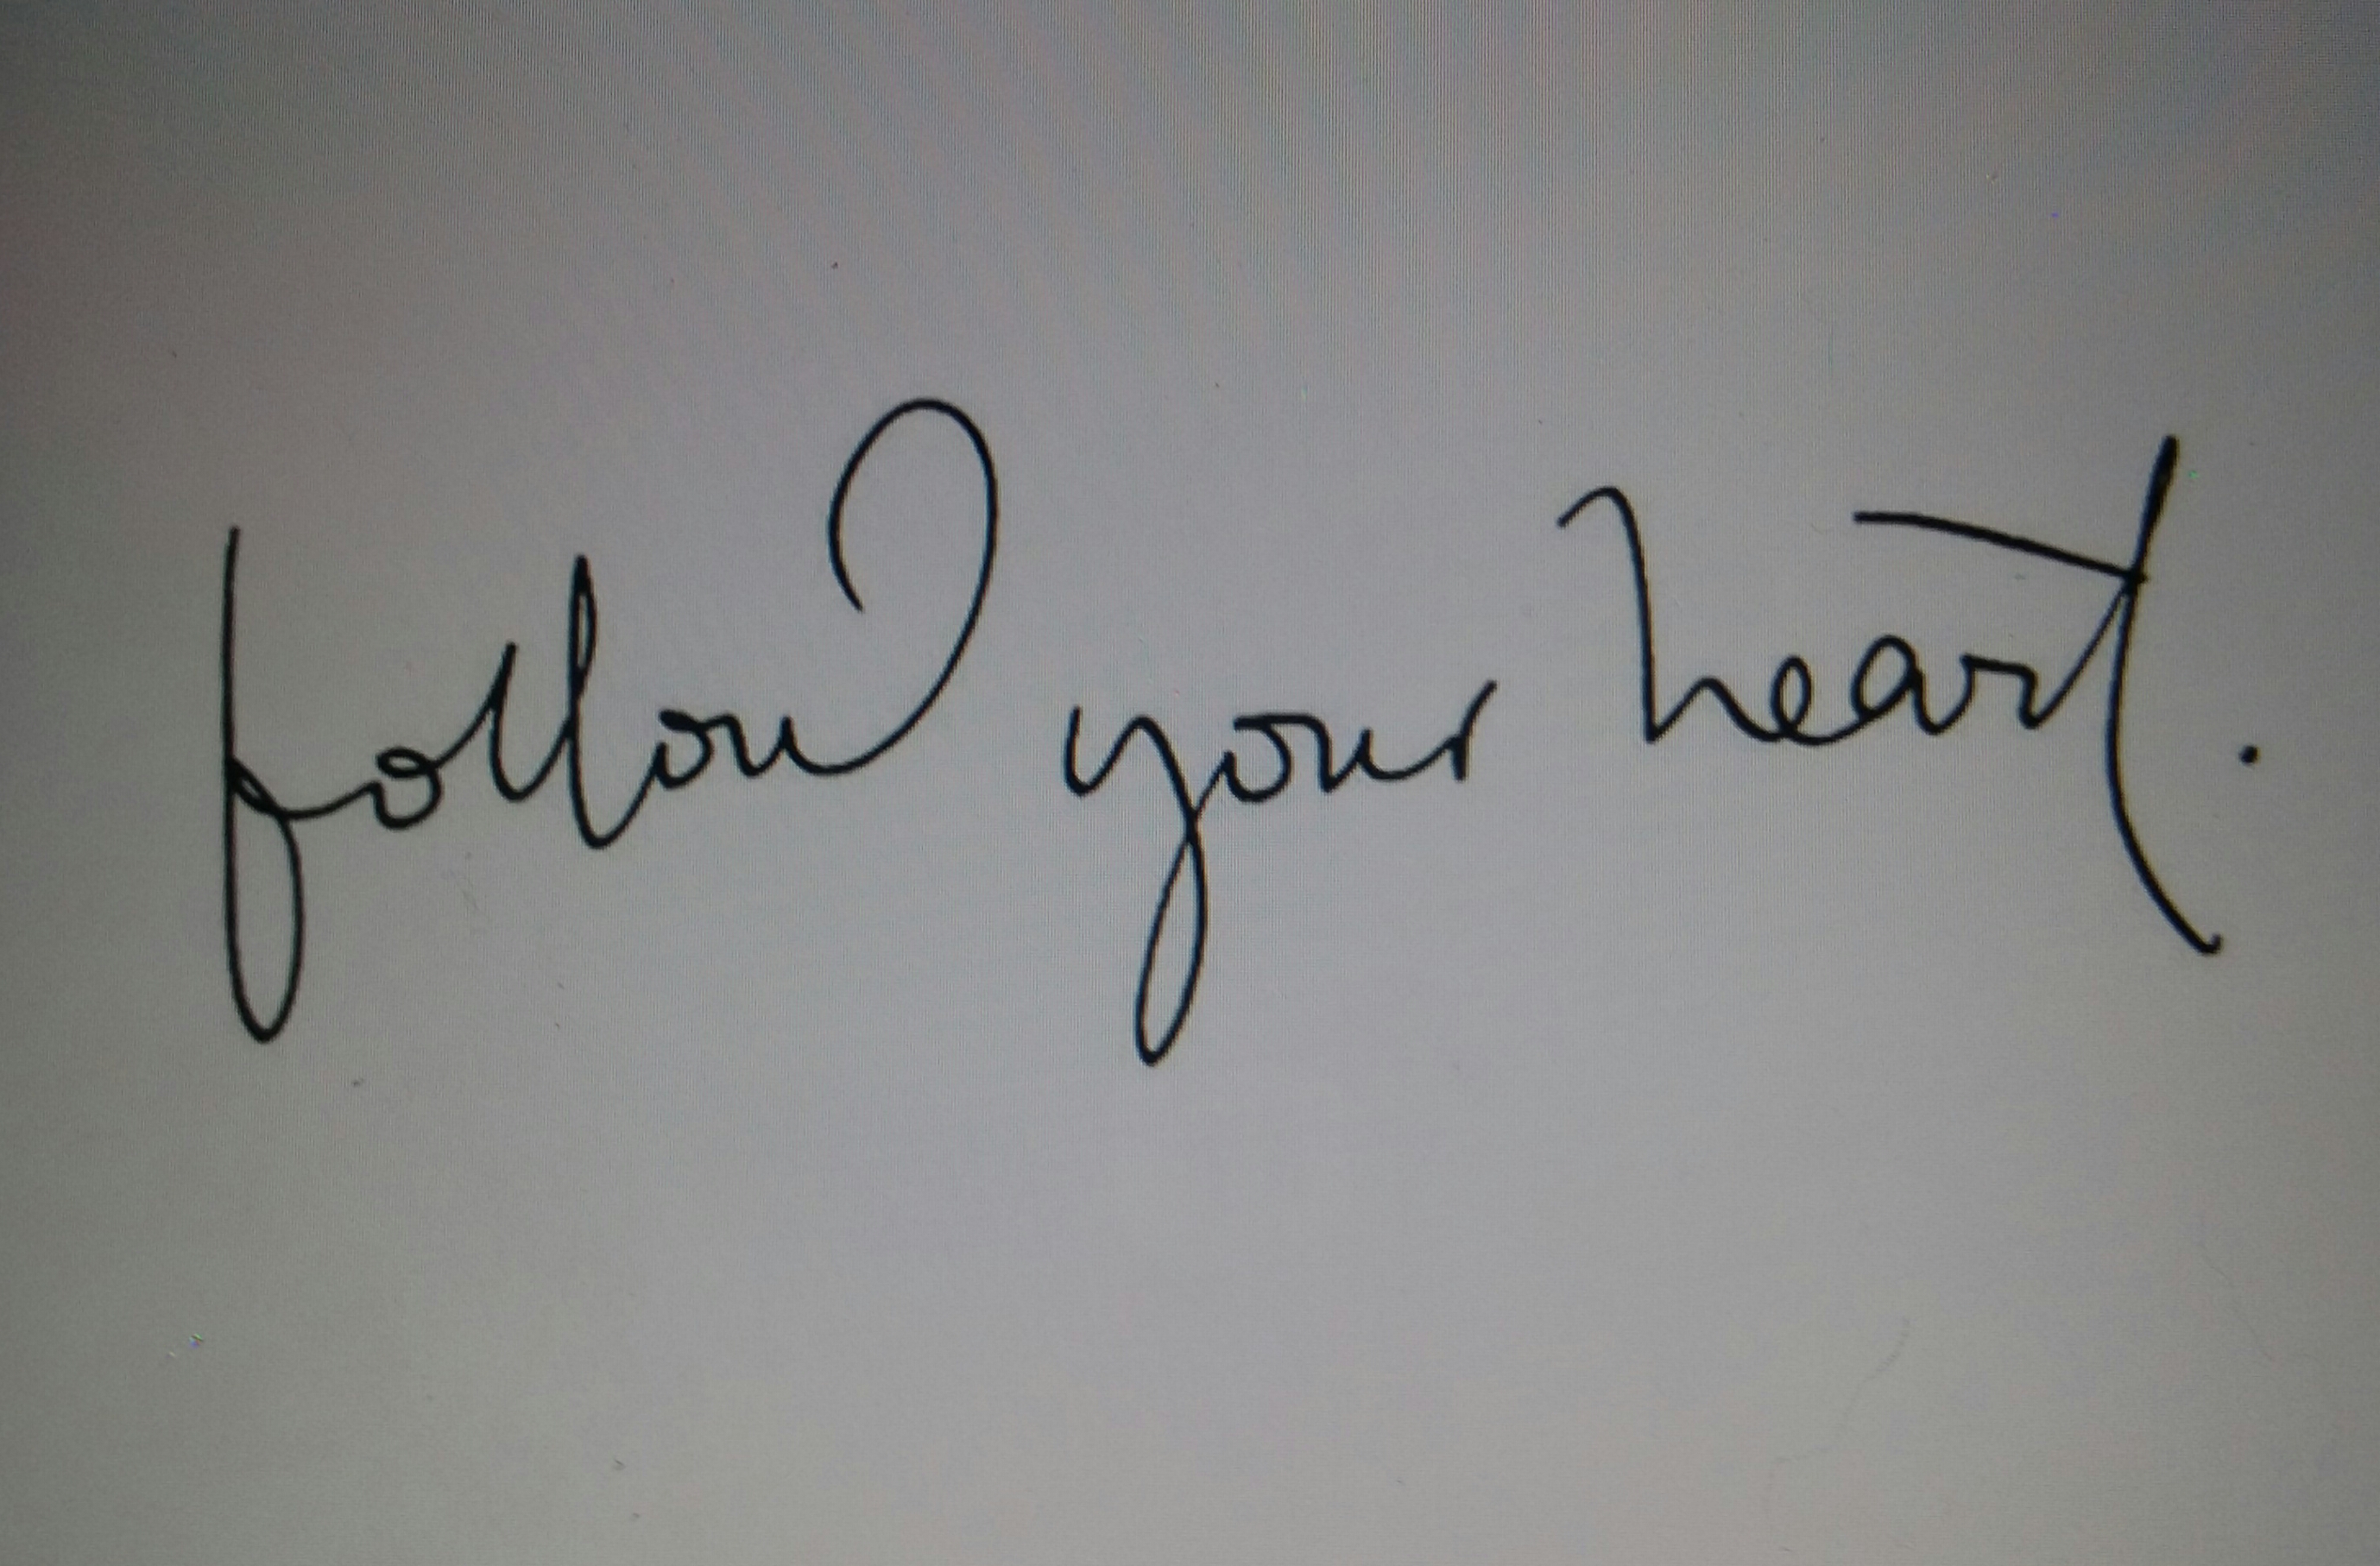 follow your heart.